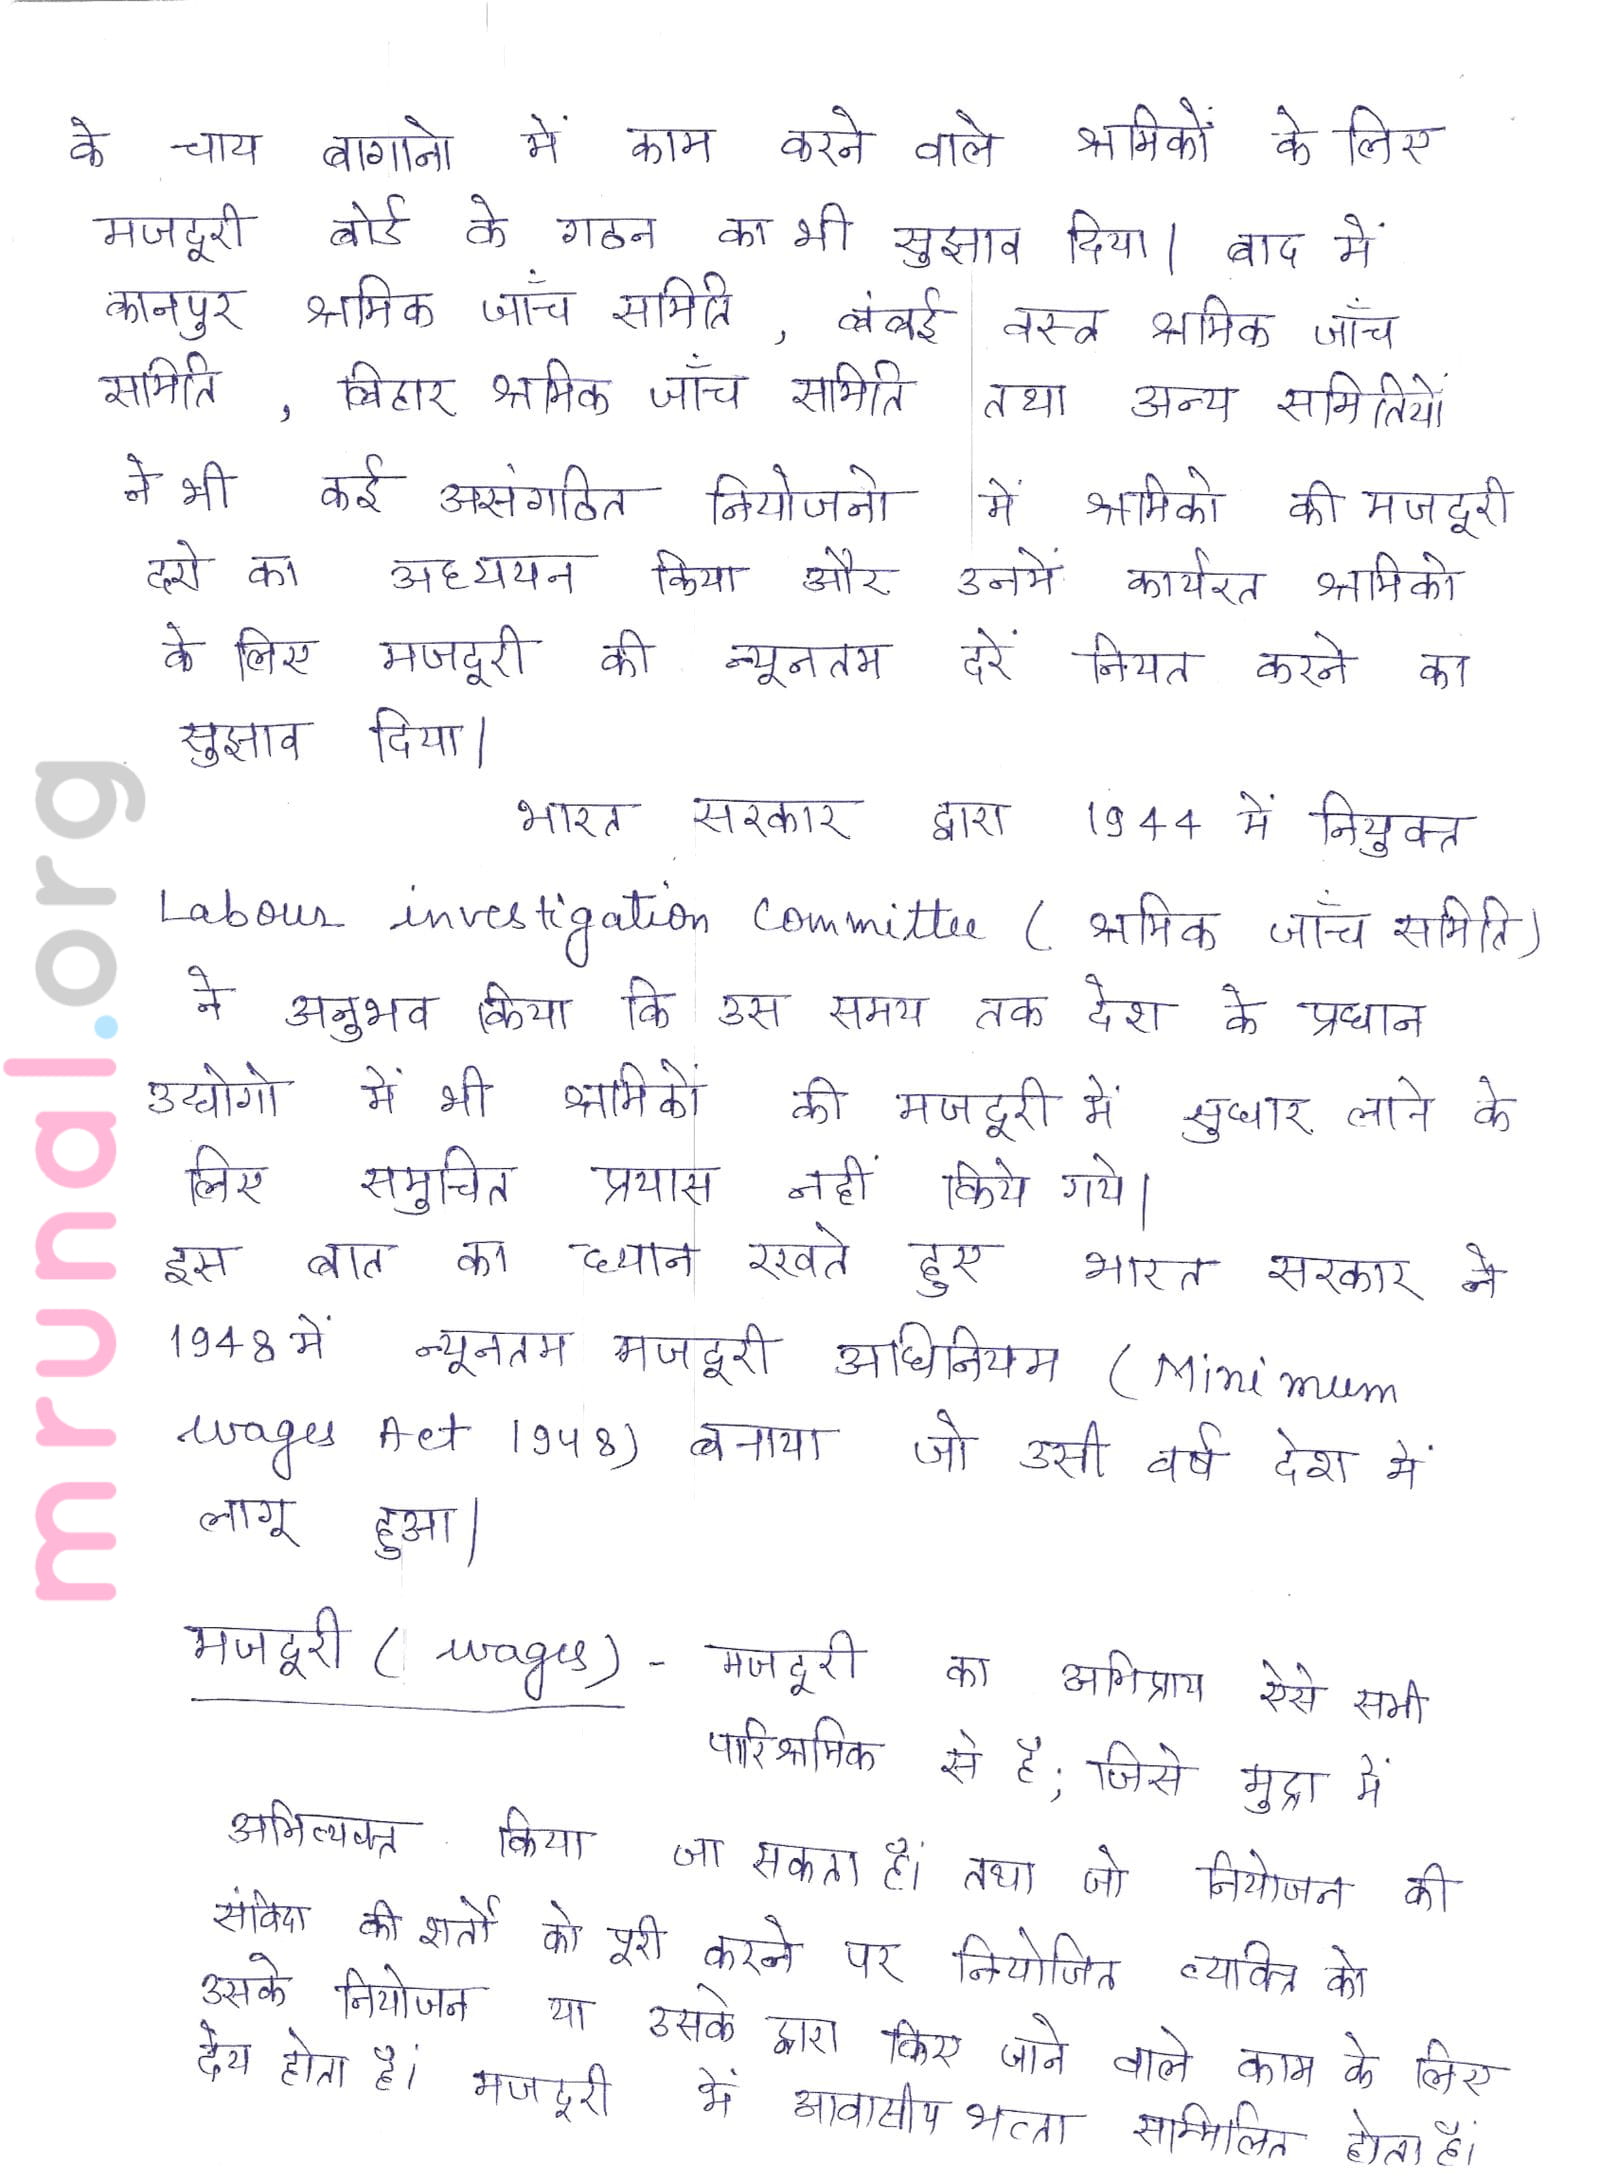 के चाय बागानो में काम करने वाले श्रमिकों के लिए
मजदूरी बोर्ड के गठन का भी सुझाव दिया|  बाद में
कानपुर श्रमिक जाँच समिति , बंबई वस्त्र श्रमिक जाँच
समिति , बिहार श्रमिक जाँच समिति तथा अन्य समितियों
ने भी कई असंगठित नियोजनो में श्रमिको की मजदूरी
दरो का अध्ययन किया और उनमें कार्यरत श्रमिको
के लिए मजदूरी की न्यूनतम दरें नियत करने का
सुझाव दिया|
भारत सरकार द्वारा 1944 में नियुक्त
Labour investigation Committee ( श्रमिक जाँच समिति)
ने अनुभव किया कि उस समय तक देश के प्रधान
उद्योगो में भी श्रमिकों की मजदूरी में सुधार लाने के
लिए समुचित प्रयास नहीं किये गये|
इस बात का ध्यान रखते हुए भारत सरकार ने
1948 में न्यूनतम मजदूरी अधिनियम (Minimum
wages Act 1948) बनाया जो उसी वर्ष देश में
लागू हुआ|
मजदूरी ( wages) - मजदूरी का अभिप्राय ऐसे सभी
पारिश्रमिक से है, जिसे मुद्रा में
अभिव्यक्त किया जा सकता है। तथा जो नियोजन की
संविदा की शर्तों को पूरी करने पर नियोजित व्यक्ति को
उसके नियोजन या उसके द्वारा किए जाने वाले काम के लिए
देय होता है। मजदूरी में आवासीय भत्ता सम्मिलित होता है।
mrunal.org